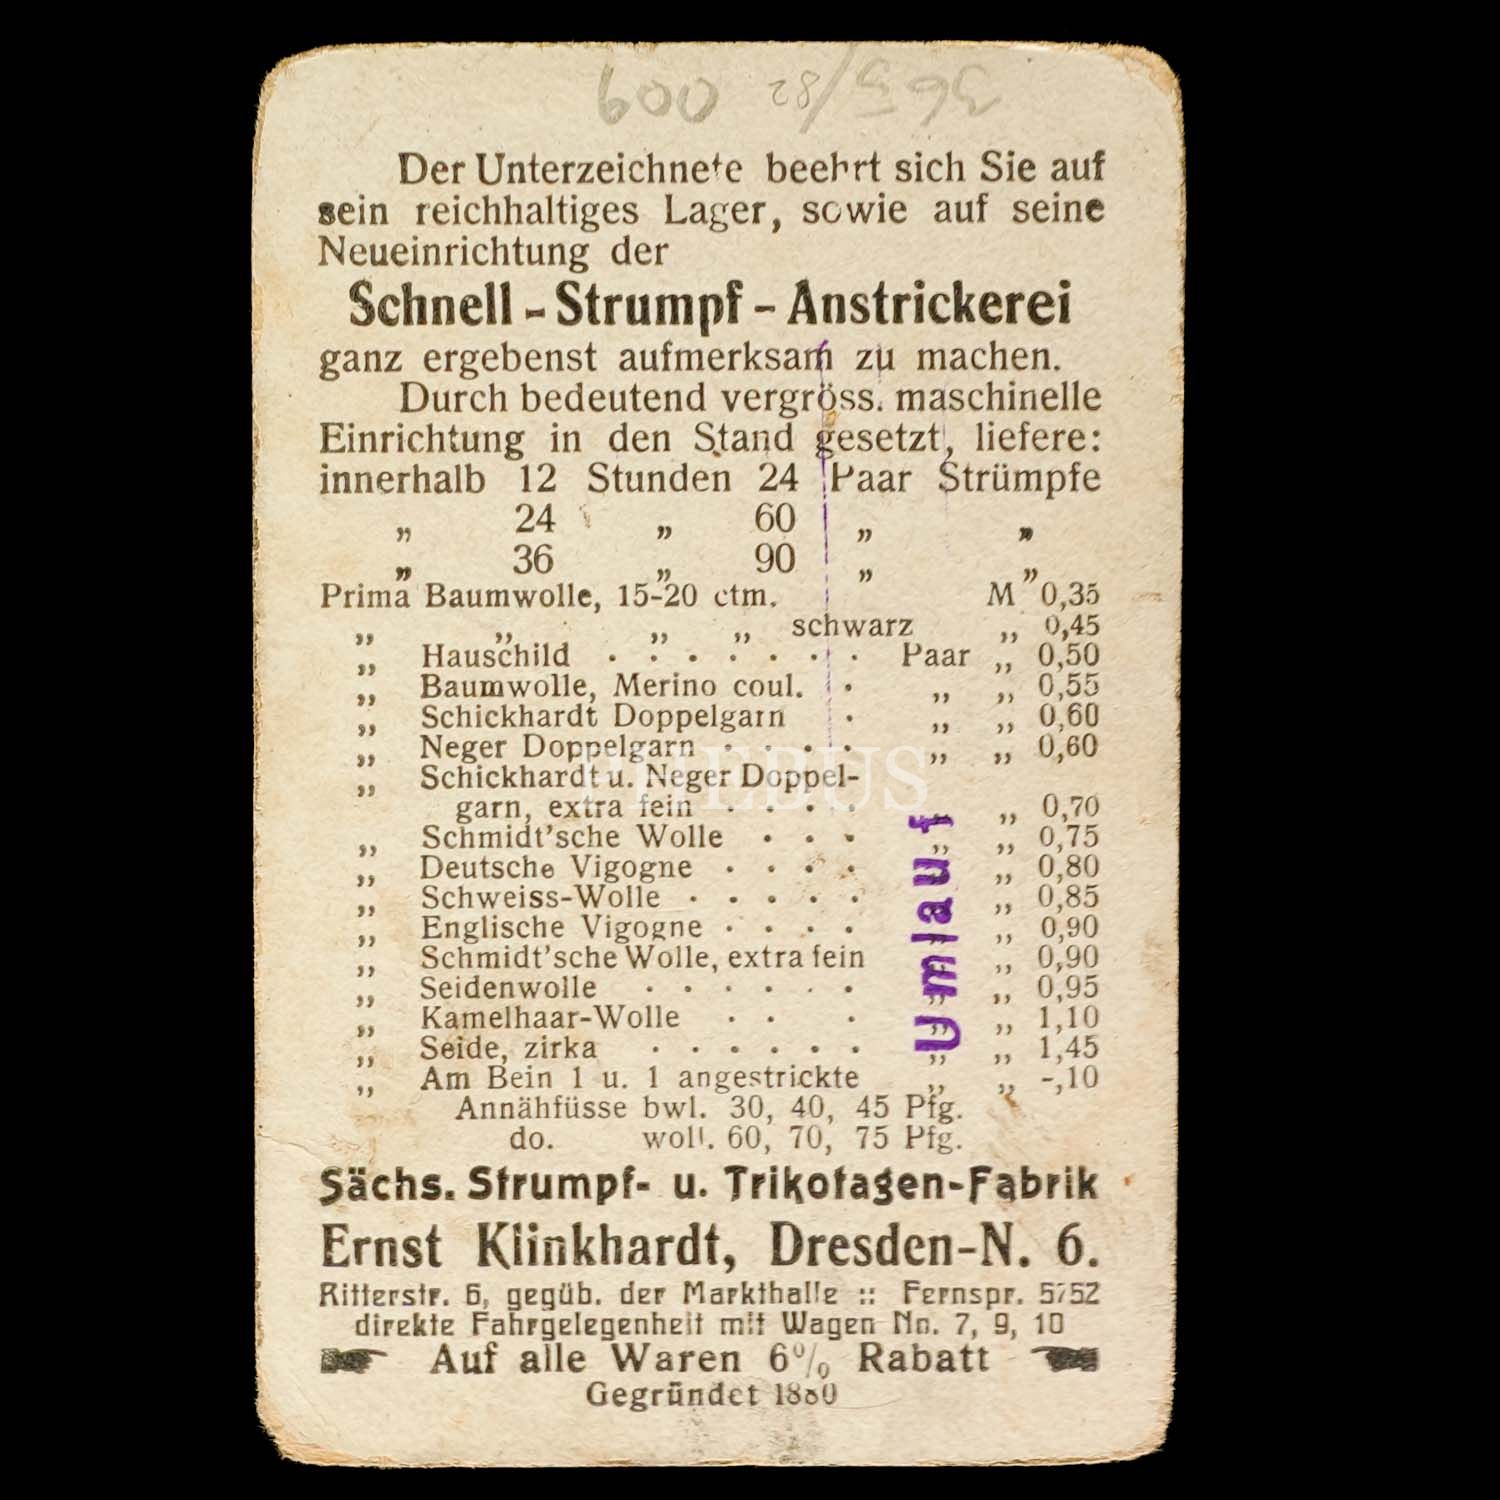 600
Der Unterzeichnete beehrt sich Sie auf
sein reichhaltiges Lager, sowie auf seine
Neueinrichtung der
Schnell-Strumpf-Anstrickerei
ganz ergebenst aufmerksam zu machen.
Durch bedeutend vergröss. maschinelle
Einrichtung in den Stand gesetzt, liefere:
innerhalb 12 Stunden 24 Paar Strümpfe
„ 24 „ 60 „ „
„ 36 „ 90 „ „
Prima Baumwolle, 15-20 ctm. M 0,35
„ „ „ „ schwarz „ 0,45
„ Hauschild . . . . . . . Paar „ 0,50
„ Baumwolle, Merino coul. . „ „ 0,55
„ Schickhardt Doppelgarn . „ „ 0,60
„ Neger Doppelgarn . . . . „ „ 0,60
„ Schickhardt u. Neger Doppel-
garn, extra fein . . . . „ „ 0,70
„ Schmidt'sche Wolle . . . „ „ 0,75
„ Deutsche Vigogne . . . . „ „ 0,80
„ Schweiss-Wolle . . . . . „ „ 0,85
„ Englische Vigogne . . . . „ „ 0,90
„ Schmidt'sche Wolle, extra fein „ „ 0,90
„ Seidenwolle . . . . . . „ „ 0,95
„ Kamelhaar-Wolle . . . „ „ 1,10
„ Seide, zirka . . . . . . „ „ 1,45
„ Am Bein 1 u. 1 angestrickte „ „ -,10
Annähfüsse bwl. 30, 40, 45 Pfg.
do. woll. 60, 70, 75 Pfg.
Umlauf
PHEBUS
Sächs. Strumpf- u. Trikotagen-Fabrik
Ernst Klinkhardt, Dresden-N. 6.
Ritterstr. 6, gegüb. der Markthalle :: Fernspr. 5752
direkte Fahrgelegenheit mit Wagen No. 7, 9, 10
Auf alle Waren 6% Rabatt
Gegründet 1880